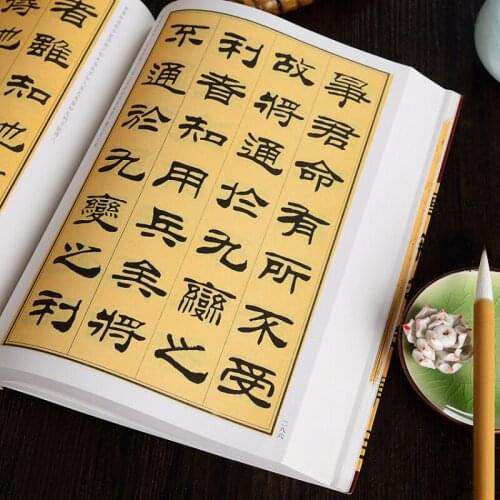 爭君命有所不受
故將通於九變之
利者知用兵矣將
不通於九變之利
二八六
者雖知